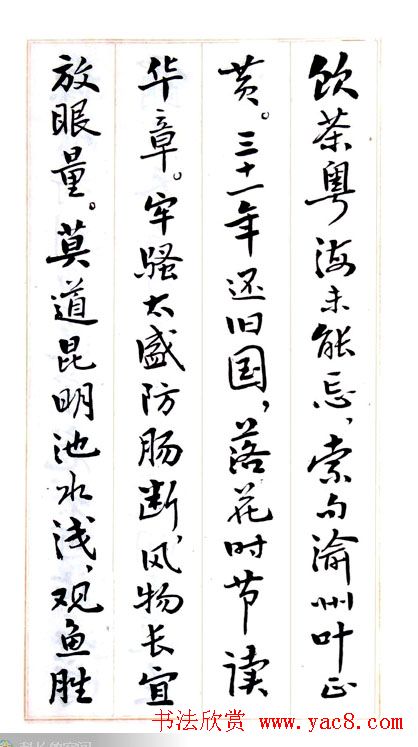 饮茶粤海未能忘,索句渝州叶正
黄。三十一年还旧国,落花时节读
华章。牢骚太盛防肠断,风物长宜
放眼量。莫道昆明池水浅,观鱼胜
书法欣赏 www.yac8.com